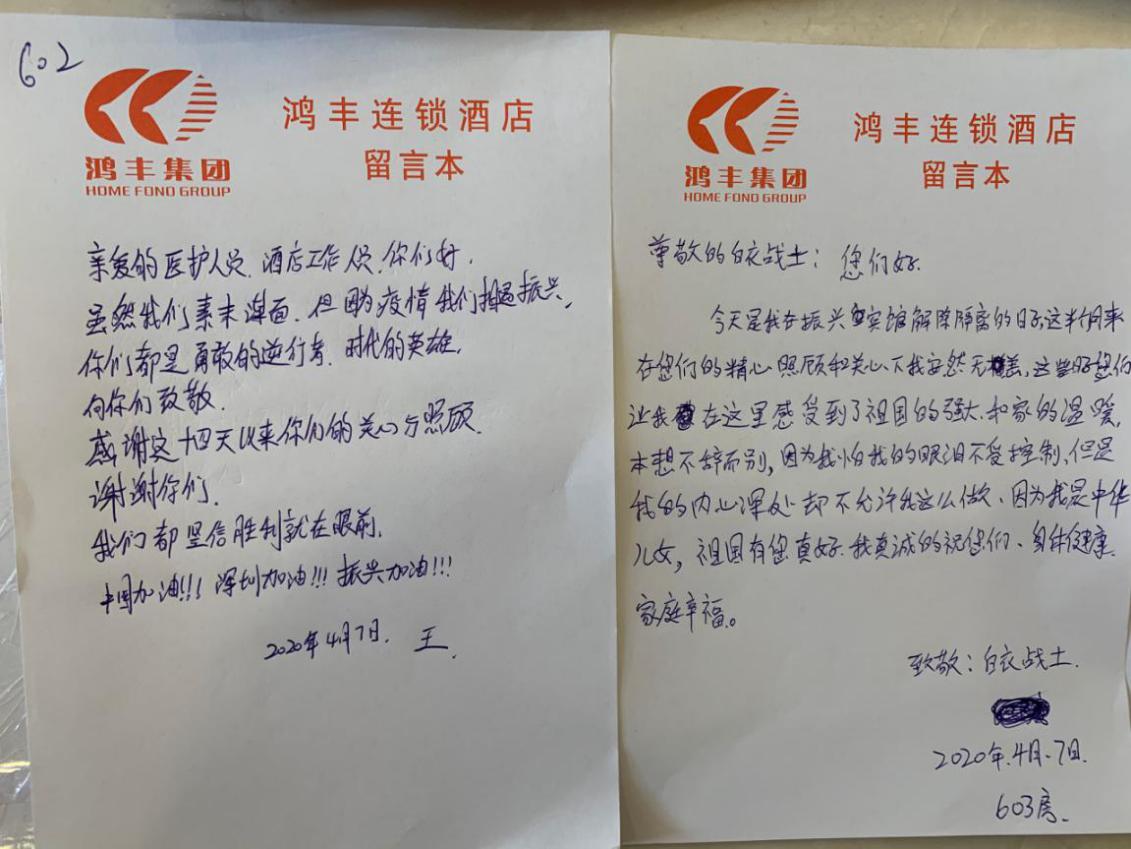 602
鸿丰集团
HOME FOND GROUP
鸿丰连锁酒店
留言本
亲爱的医护人员、酒店工作人员、你们好、
虽然我们素未谋面、但因为疫情我们相遇振兴、
你们都是勇敢的逆行者、时代的英雄、
向你们致敬、
感谢这十四天以来你们的关心与照顾、
谢谢你们、
我们都坚信胜利就在眼前、
中国加油!!! 深圳加油!!! 振兴加油!!!
2020年4月7日、 王、
鸿丰集团
HOME FOND GROUP
鸿丰连锁酒店
留言本
尊敬的白衣战士：您们好、
今天是我在振兴宾馆解除隔离的日子、这半个月来
在您们的精心照顾和关心下我安然无恙、这些好您们
让我在这里感受到了祖国的强大、和家的温暖、
本想不辞而别，因为我怕我的眼泪不受控制、但是
我的内心深处却不允许我这么做、因为我是中华
儿女，祖国有您真好、我真诚的祝您们、身体健康、
家庭幸福。
致敬：白衣战士、
2020年、4月、7日、
603房、